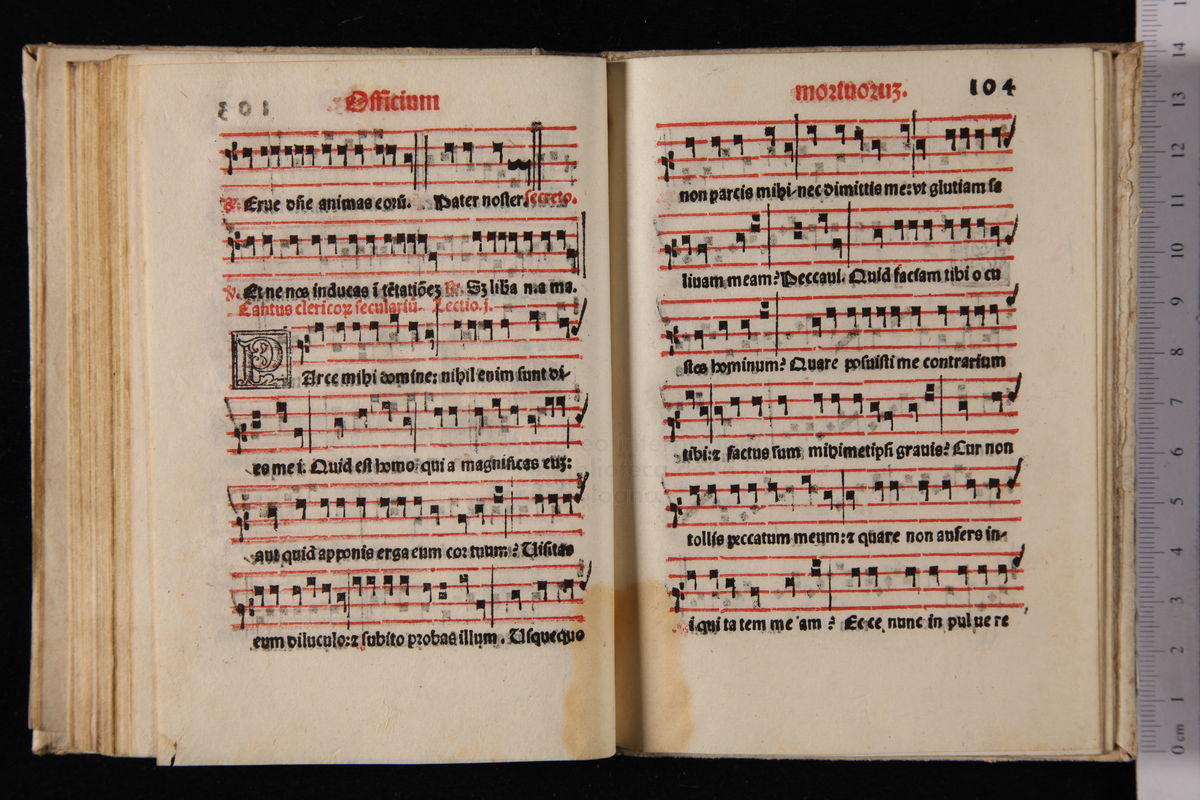 103
Officium
℣. Erue dñe animas eorũ. Pater noster. secreto.
℣. Et ne nos inducas ĩ tẽtatiõeʒ ℟. Sʒ liba n.a ma.
Cantus clericoꝝ seculariũ. Lectio.j.
PArce mihi domine: nihil enim sunt di-
es mei. Quid est homo: qui a magnificas euʒ:
aut quid apponis erga eum cor tuum? Uisitas
eum diluculo: ⁊ subito probas illum. Usquequo
mortuoruʒ.
104
non parcis mihi nec dimittis me: vt glutiam sa
liuam meam? Peccaui. Quid faciam tibi o cu
stos hominum? Quare posuisti me contrarium
tibi: ⁊ factus sum mihimetipsi grauis? Cur non
tollis peccatum meum: ⁊ quare non aufers in-
i qui ta tem me am? Ec ce nunc in pul ue re
0 cm 1 2 3 4 5 6 7 8 9 10 11 12 13 14